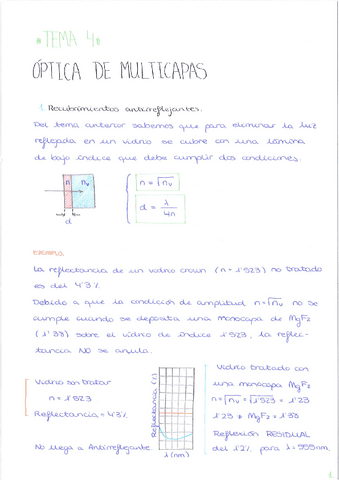 * TEMA 4 *
ÓPTICA DE MULTICAPAS
1. Recubrimientos antirreflejantes.
Del tema anterior sabemos que para eliminar la luz
reflejada en un vidrio se cubre con una lámina
de bajo índice que debe cumplir dos condiciones.
n nv
n = √nv
d = λ/4n
d
EJEMPLO.
La reflectancia de un vidrio crown (n = 1'523) no tratado
es del 4'3%.
Debido a que la condición de amplitud n=√nv no se
cumple cuando se deposita una monocapa de MgF2
(1'38) sobre el vidrio de índice 1'523, la reflec-
tancia NO se anula.
Vidrio sin tratar
n = 1'523
Reflectancia = 4'3%
No llega a Antirreflejante.
Reflectancia (%)
λ (nm)
Vidrio tratado con
una monocapa MgF2
n = √nv = √1'523 = 1'23
1'23 ≠ MgF2 = 1'38
Reflexión RESIDUAL
del 1'2% para λ = 555nm.
1